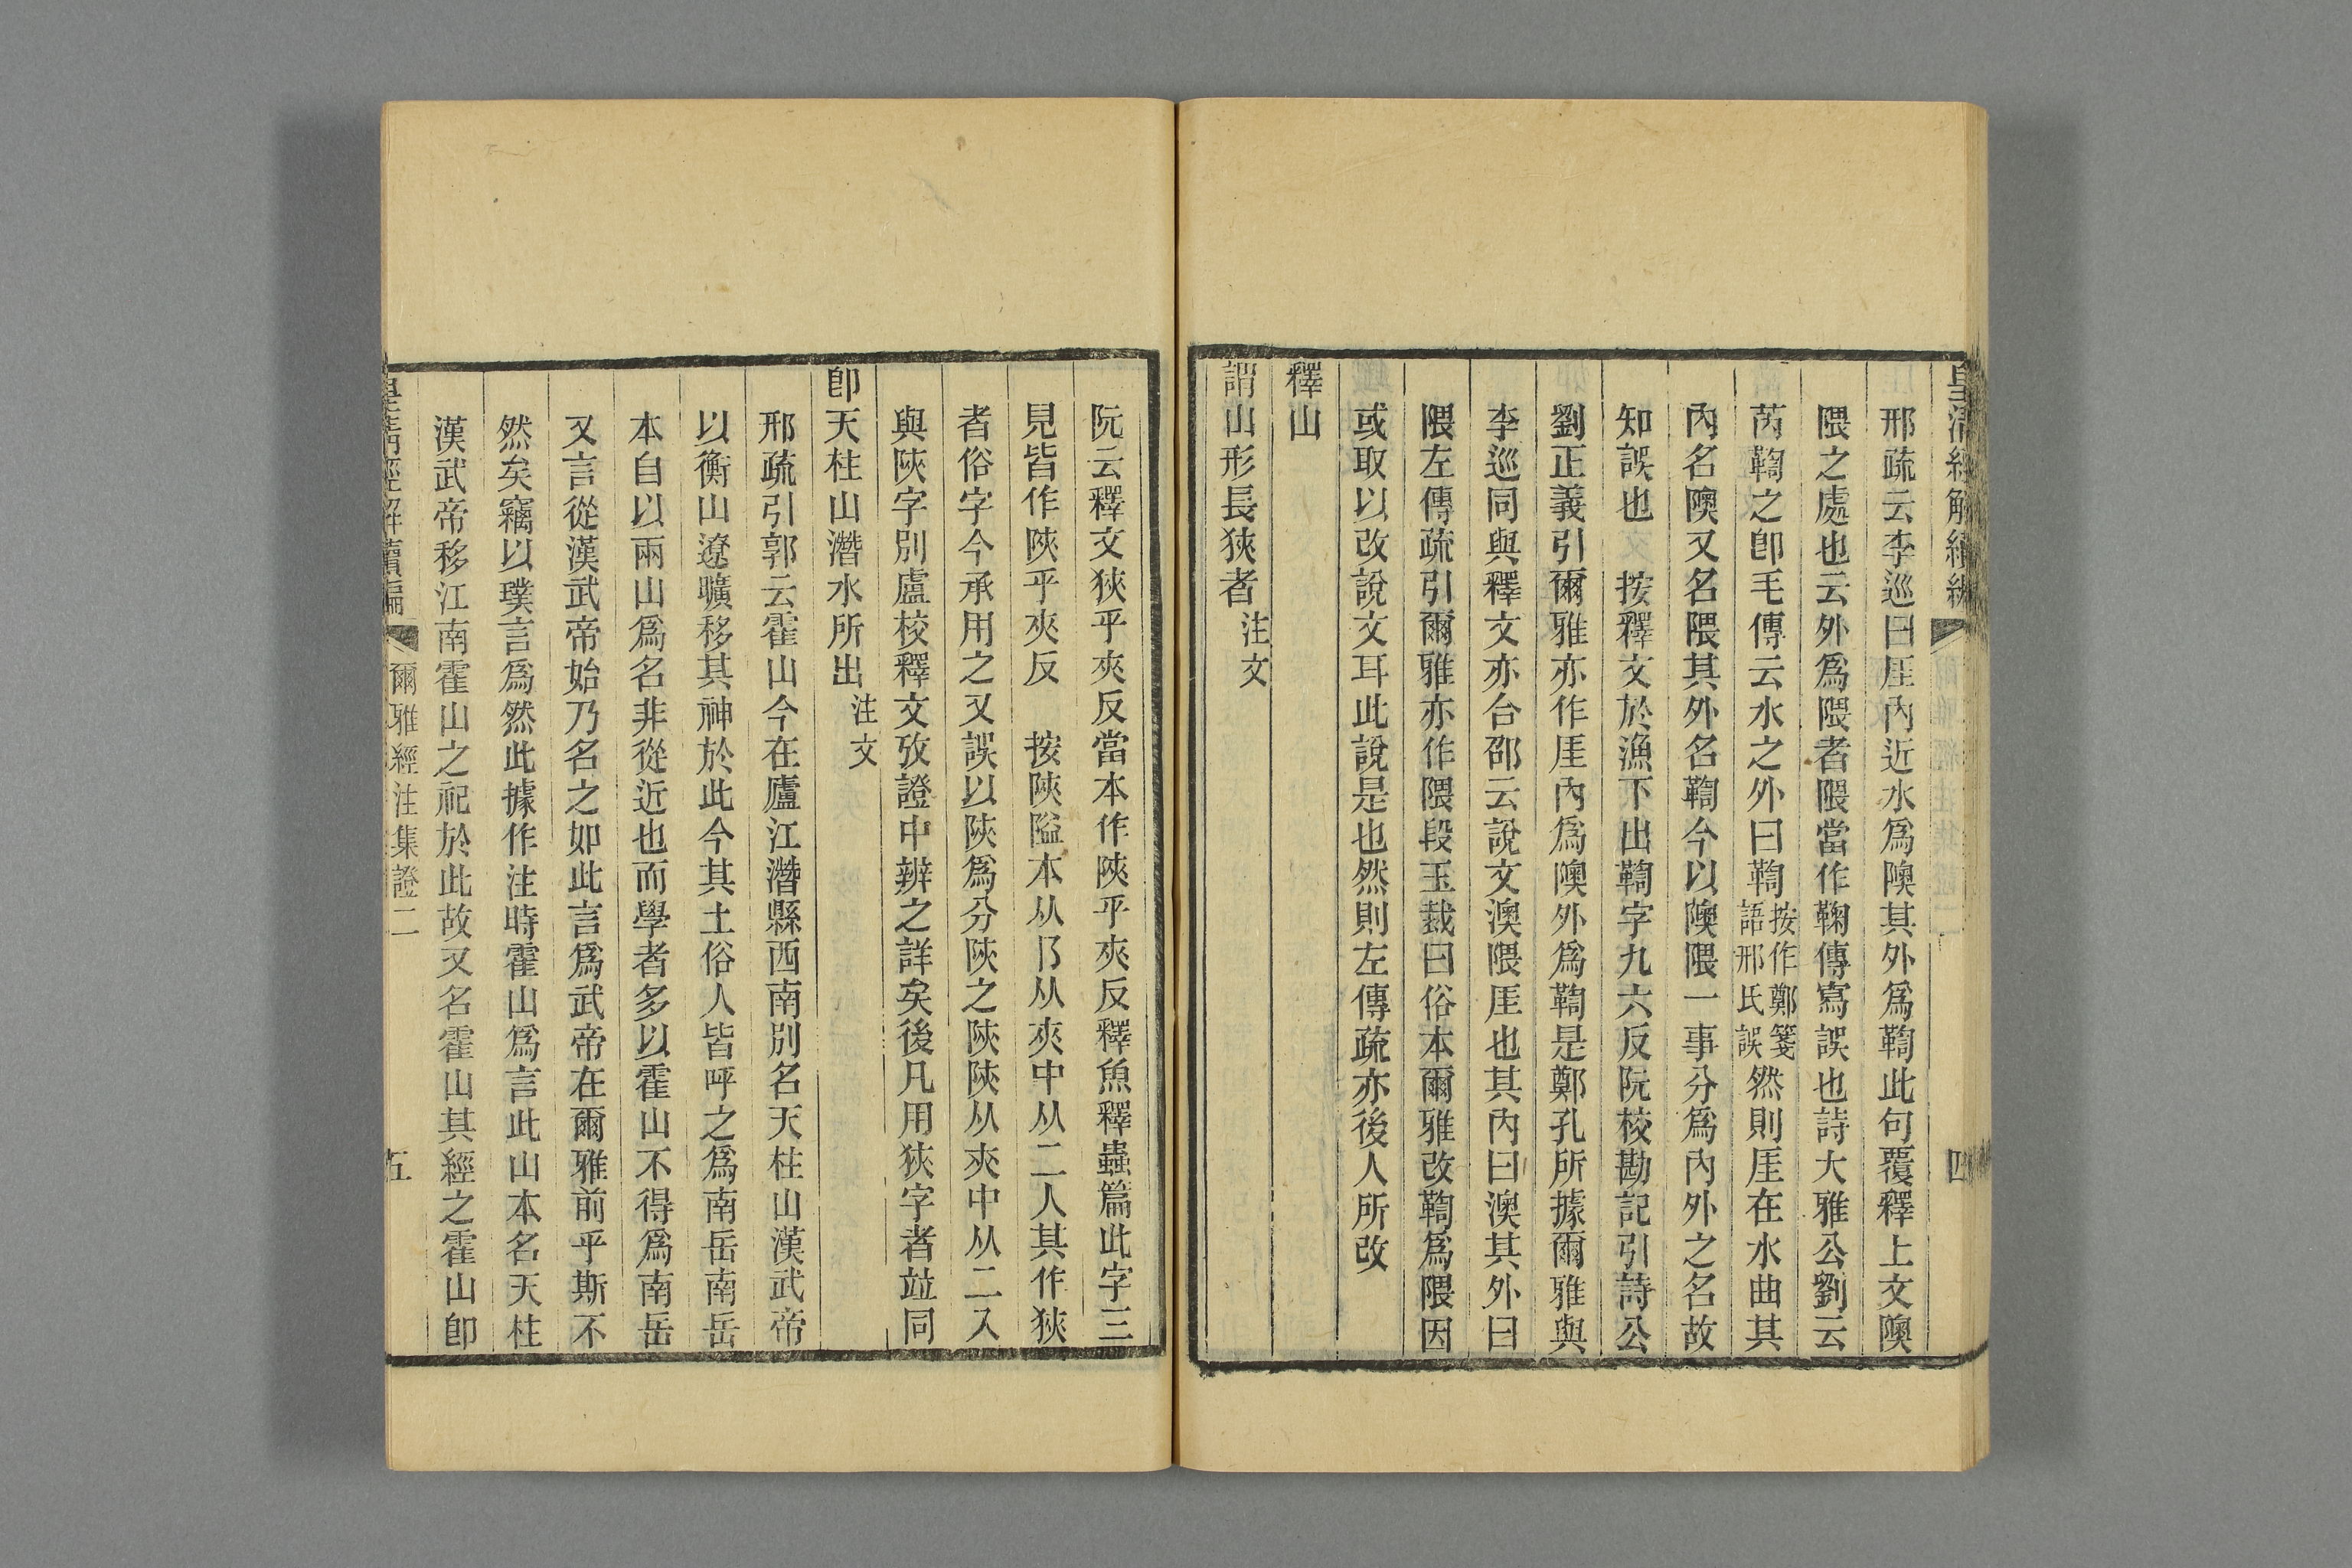 皇清經解續編
四
邢疏云李巡曰厓內近水爲隩其外爲鞫此句覆釋上文隩
隈之處也云外爲隈者隈當作鞫傳寫誤也詩大雅公劉云
芮鞫之卽毛傳云水之外曰鞫按作鄭箋語邢氏誤然則厓在水曲其
內名隩又名隈其外名鞫今以隩隈一事分爲內外之名故
知誤也　按釋文於漁下出鞫字九六反阮校勘記引詩公
劉正義引爾雅亦作厓內爲隩外爲鞫是鄭孔所據爾雅與
李巡同與釋文亦合邵云說文澳隈厓也其內曰澳其外曰
隈左傳疏引爾雅亦作隈段玉裁曰俗本爾雅改鞫爲隈因
或取以改說文耳此說是也然則左傳疏亦後人所改
釋山
謂山形長狹者注文
阮云釋文狹乎夾反當本作陜乎夾反釋魚釋蟲篇此字三
見皆作陜乎夾反　按陜隘本从阝从夾中从二人其作狹
者俗字今承用之又誤以陜爲分陝之陝陝从夾中从二入
與陜字別盧校釋文攷證中辨之詳矣後凡用狹字者竝同
卽天柱山潛水所出注文
邢疏引郭云霍山今在廬江潛縣西南別名天柱山漢武帝
以衡山遼曠移其神於此今其土俗人皆呼之爲南岳南岳
本自以兩山爲名非從近也而學者多以霍山不得爲南岳
又言從漢武帝始乃名之如此言爲武帝在爾雅前乎斯不
然矣竊以璞言爲然此據作注時霍山爲言此山本名天柱
漢武帝移江南霍山之祀於此故又名霍山其經之霍山卽
皇清經解續編
爾雅經注集證二
五